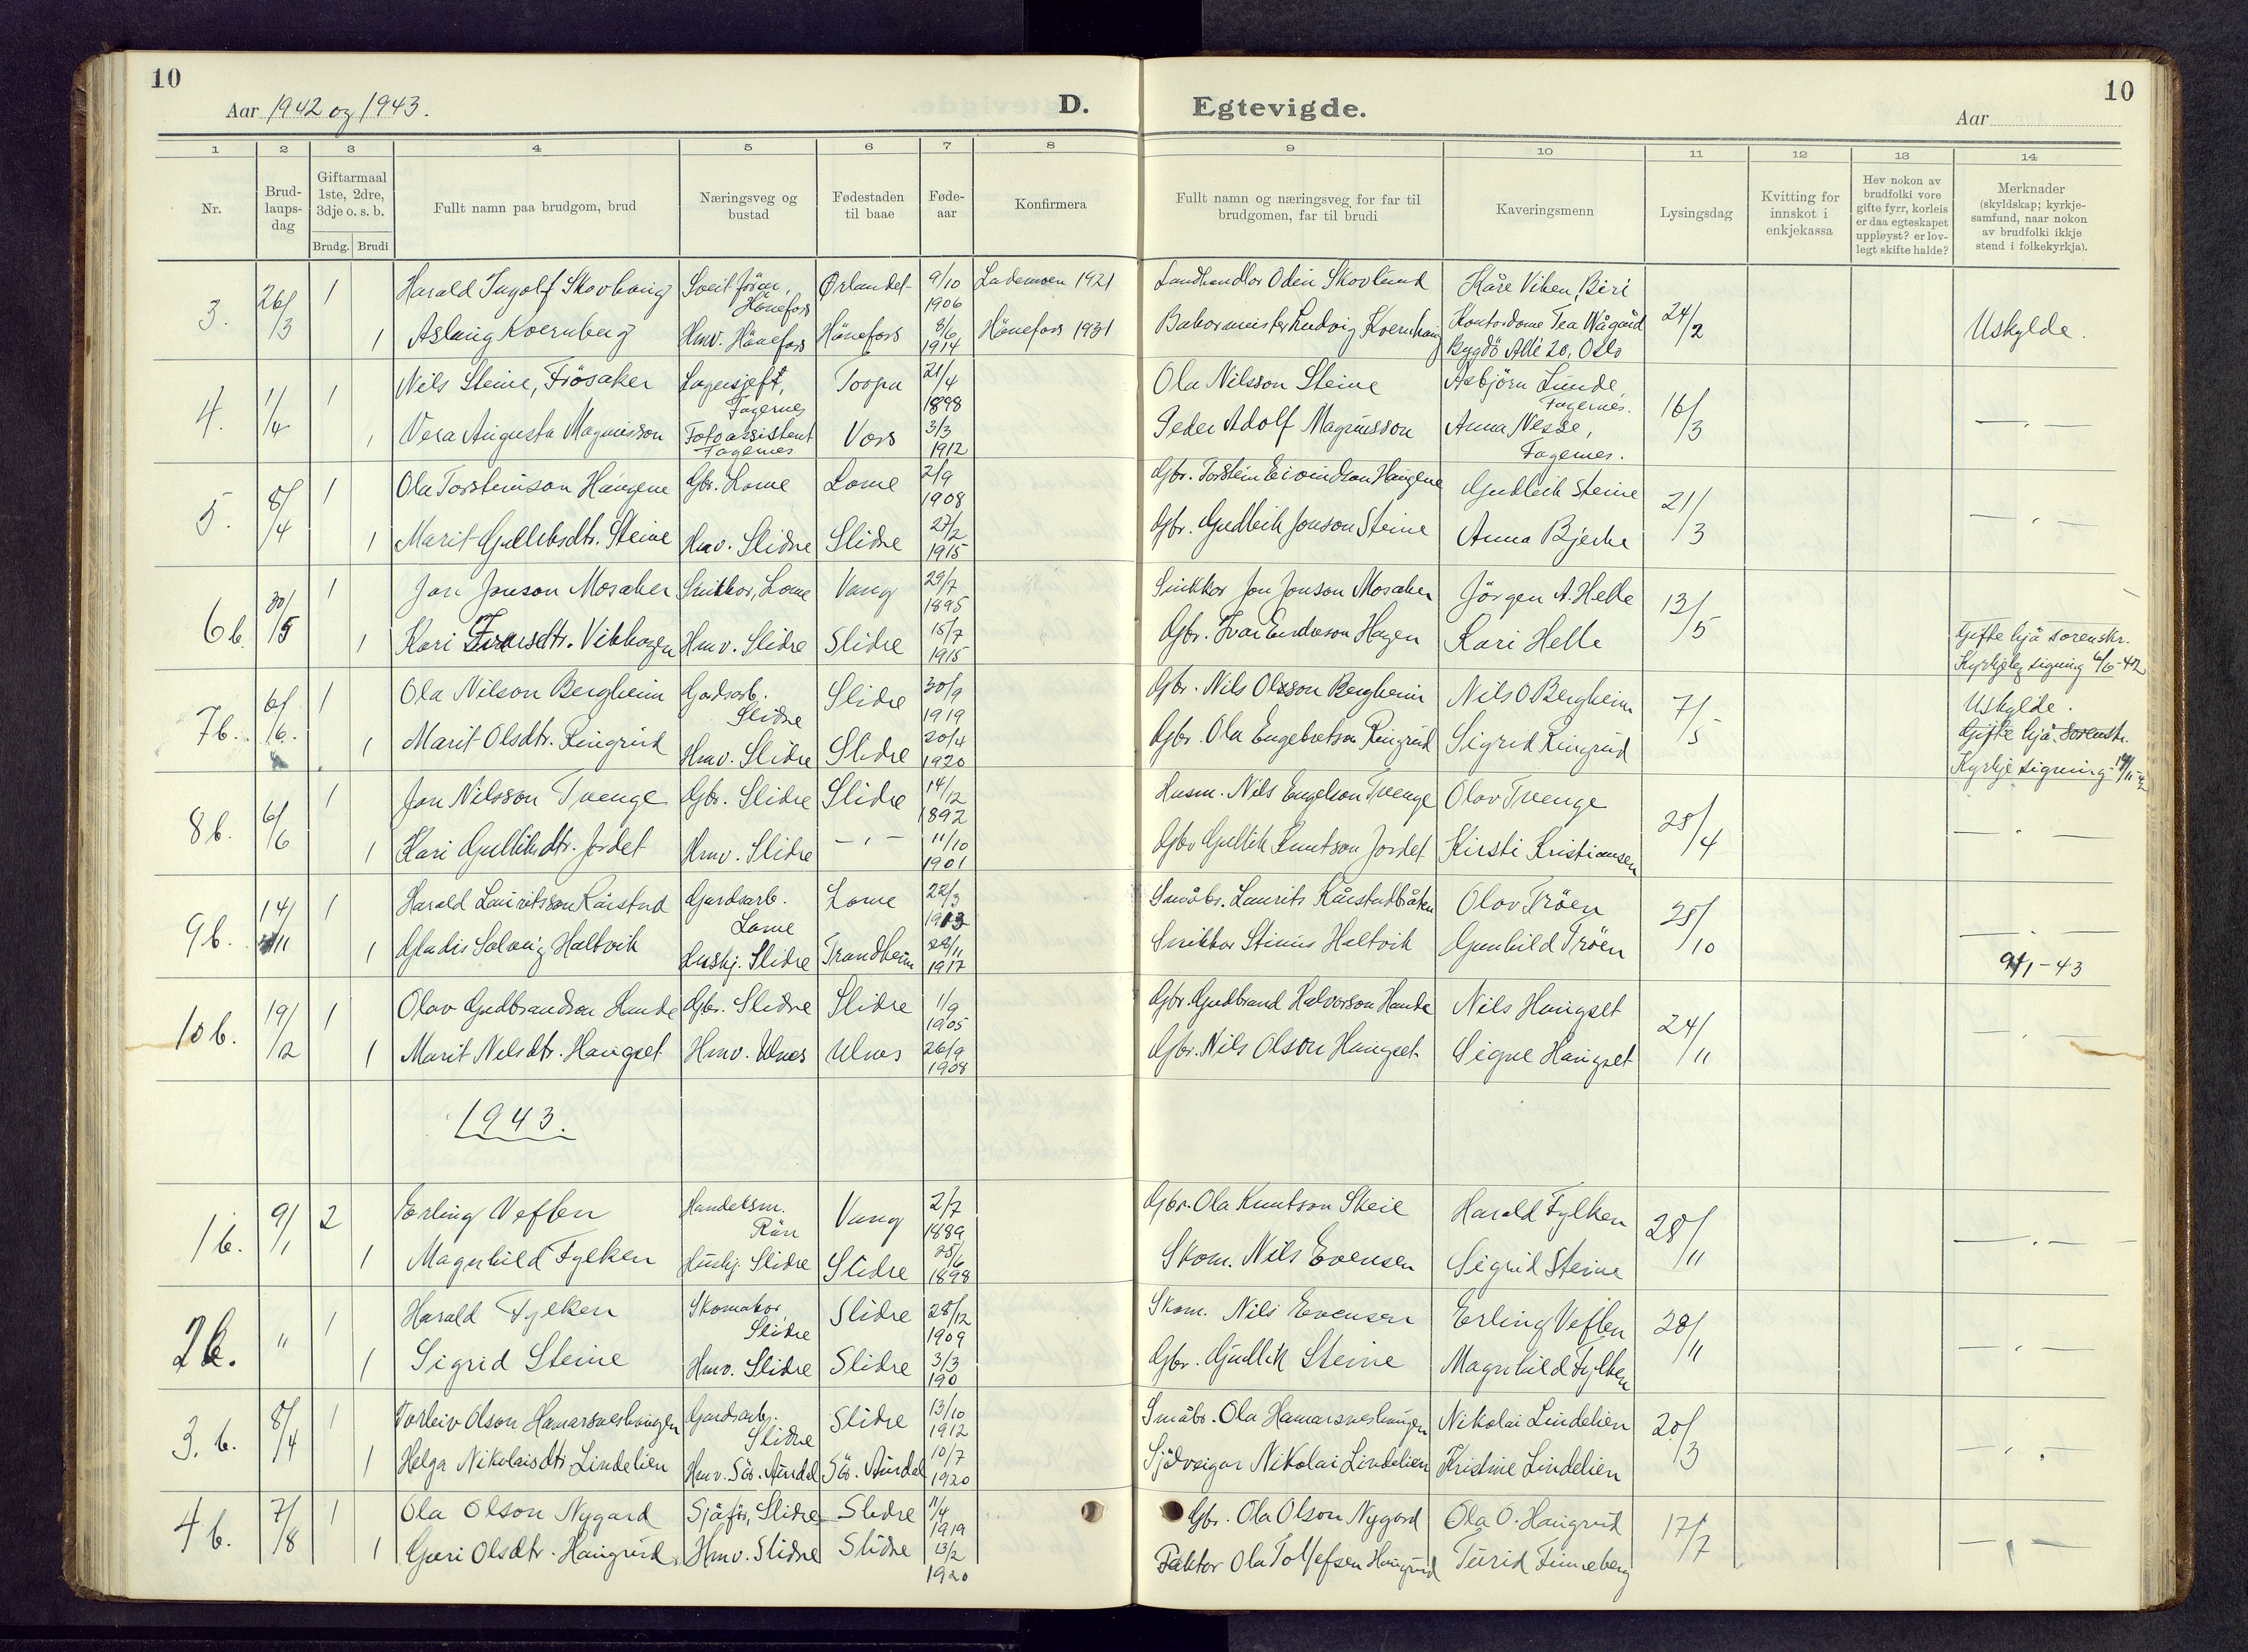 10
Aar 1942 og 1943.
D.
Egtevigde.
10
Aar
1 2 3 4 5 6 7 8 9 10 11 12 13 14
Nr.
Brud-
laups-
dag
Giftarmaal
1ste, 2dre,
3dje o. s. b.
Brudg. Brudi
Fullt namn paa brudgom, brud
Næringsveg og
bustad
Fødestaden
til baae
Føde-
aar
Konfirmera
Fullt namn og næringsveg for far til
brudgomen, far til brudi
Kaveringsmenn
Lysingsdag
Kvitting for
innskot i
enkjekassa
Hev nokon av
brudfolki vore
gifte fyrr, korleis
er daa egteskapet
uppløyst? er lov-
legt skifte halde?
Merknader
(skyldskap; kyrkje-
samfund, naar nokon
av brudfolki ikkje
stend i folkekyrkja).
3. 26/3 1 Harald Ingolf Skovhaug Hönefoss Ørlandet 9/10 1906 Lademoen 1921 Landhandlar Odin Kåre Viken, Biri 24/2 Uskylde.
1 Aslaug Kvernberg Hmv. Hönefoss Hönefoss 8/6 1914 Hönefoss 1931 Ludvig Tea Wågård
Bygdö Allé 20, Oslo
4. 1/4 1 Nils Steine, Frösaker Lagersjef, Fagernes Torpa 21/4 1898 Ola Nilsson Steine Asbjörn Lunde, Fagernes. 16/3 —"—
1 Vera Augusta Magnusson Fotoassistent Fagernes Vors 3/3 1912 Peder Adolf Magnusson Anna Nesse, Fagernes.
5. 8/4 1 Ola Torsteinson Haugene Gbr. Lome Lome 2/9 1908 Gbr. Torstein Eivindson Haugene Gudleik Steine 21/3 —"—
1 Marit Gulleiksdtr. Steine Hmv. Slidre Slidre 27/2 1915 Gbr. Gudleik Jonson Steine Anna Bjerke
6 b. 30/5 1 Jon Jonson Mosaker Snikkar, Lome Vang 29/7 1895 Snikkar Jon Jonson Mosaker Jörgen A. Helle 13/5
1 Kari Ivarsdtr. Vikhagen Hmv. Slidre Slidre 15/7 1915 Gbr. Ivar Endreson Hagen Kari Helle Gifte hjå sorenskr.
Kyrkjeleg signing 6/6-42
7 b. 6/6. 1 Ola Nilson Bergheim Gardsarb. Slidre Slidre 30/9 1919 Gbr. Nils Olsson Bergheim Nils O Bergheim 7/5 Uskylde.
1 Marit Olsdtr. Ringrud Hmv. Slidre Slidre 20/4 1920 Gbr. Ola Engebretson Ringrud Sigrid Ringrud Gifte hjå sorenskr.
Kyrkje signing
8 b. 6/6 1 Jon Nilsson Tvenge Gbr. Slidre Slidre 14/12 1892 Husm. Nils Tvenge Olav Tvenge 25/4 —"—
1 Kari Gulliksdtr. Jordet Hmv. Slidre —"— 11/10 1901 Gbr Gullik Knutson Jordet Kirsti Kristiansen
9 b. 14/11 1 Harald Lauritsson Kårstad Gardsarb. Lome Lome 22/3 1913 Småbr. Laurits Kårstadbråten Olav Tröen 25/10 —"—
1 Gladis Solveig Haltvik Hushj. Slidre Trondheim 28/11 1917 Snikkar Haltvik Gunhild Tröen 9/1-43
10 b. 19/12 1 Olav Gudbrandson Hande Gbr. Slidre Slidre 1/9 1905 Gbr. Gudbrand Halvorson Hande Nils Haugset 24/11 —"—
1 Marit Nilsdtr. Haugset Hmv. Ulnes Ulnes 26/9 1908 Gbr. Nils Olson Haugset Signe Haugset
1943.
1 b. 9/1 2 Erling Veflen Handelsm. Rön Vang 2/7 1889 Gbr. Ola Knutson Skeie Harald Fylken 28/11 —"—
1 Magnhild Fylken Hushj. Slidre Slidre 25/6 1898 Skom. Nils Evensen Sigrid Steine
2 b. " 1 Harald Fylken Skomakar Slidre Slidre 28/12 1909 Skom. Nils Evensen Erling Veflen 28/11 —"—
1 Sigrid Steine Hmv. Slidre Slidre 3/3 190 Gbr. Gudlik Steine Magnhild Fylken
3. b. 8/4 1 Torleiv Olson Hamarsneshaugen Gardsarb. Slidre Slidre 13/10 1912 Småbr. Ola Hamarsneshaugen Nikolai Lindelien 20/3 —"—
1 Helga Nikolaisdtr. Lindelien Hmv. Sör. Aurdal Sör. Aurdal 10/7 1920 Sjölveigar Nikolai Lindelien Kristine Lindelien
4 b. 7/8 1 Ola Olson Nygard Sjåför, Slidre Slidre 11/4 1919 Gbr. Ola Olson Nygard Ola O. Haugrud 17/7 —"—
1 Guri Olsdtr. Haugrud Hmv. Slidre Slidre 13/2 1920 Faktor Ola Tollefsen Haugrud Turid Finneberg